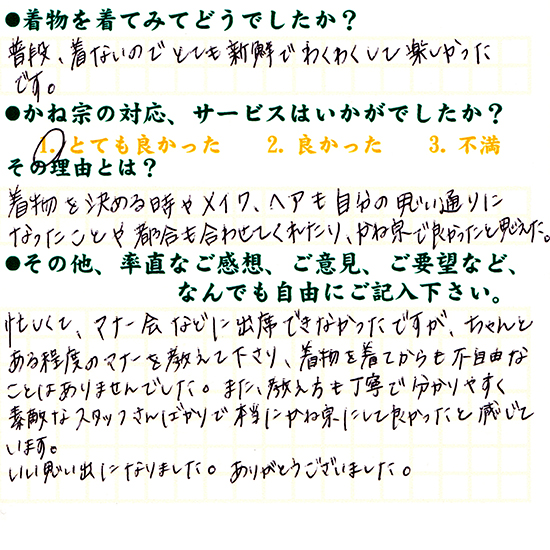 ●着物を着てみてどうでしたか？
普段、着ないのでとても新鮮でわくわくして楽しかった
です。
●かね宗の対応、サービスはいかがでしたか？
1. とても良かった 2. 良かった 3. 不満
その理由とは？
着物を決める時やメイク、ヘアも自分の思い通りに
なったことや都合も合わせてくれたり、かね宗で良かったと思えた。
●その他、率直なご感想、ご意見、ご要望など、
なんでも自由にご記入下さい。
忙しくて、マナー会などに出席できなかったですが、ちゃんと
ある程度のマナーを教えて下さり、着物を着てからも不自由な
ことはありませんでした。また、教え方も丁寧で分かりやすく
素敵なスタッフさんばかりで本当にかね宗にして良かったと感じて
います。
いい思い出になりました。ありがとうございました。